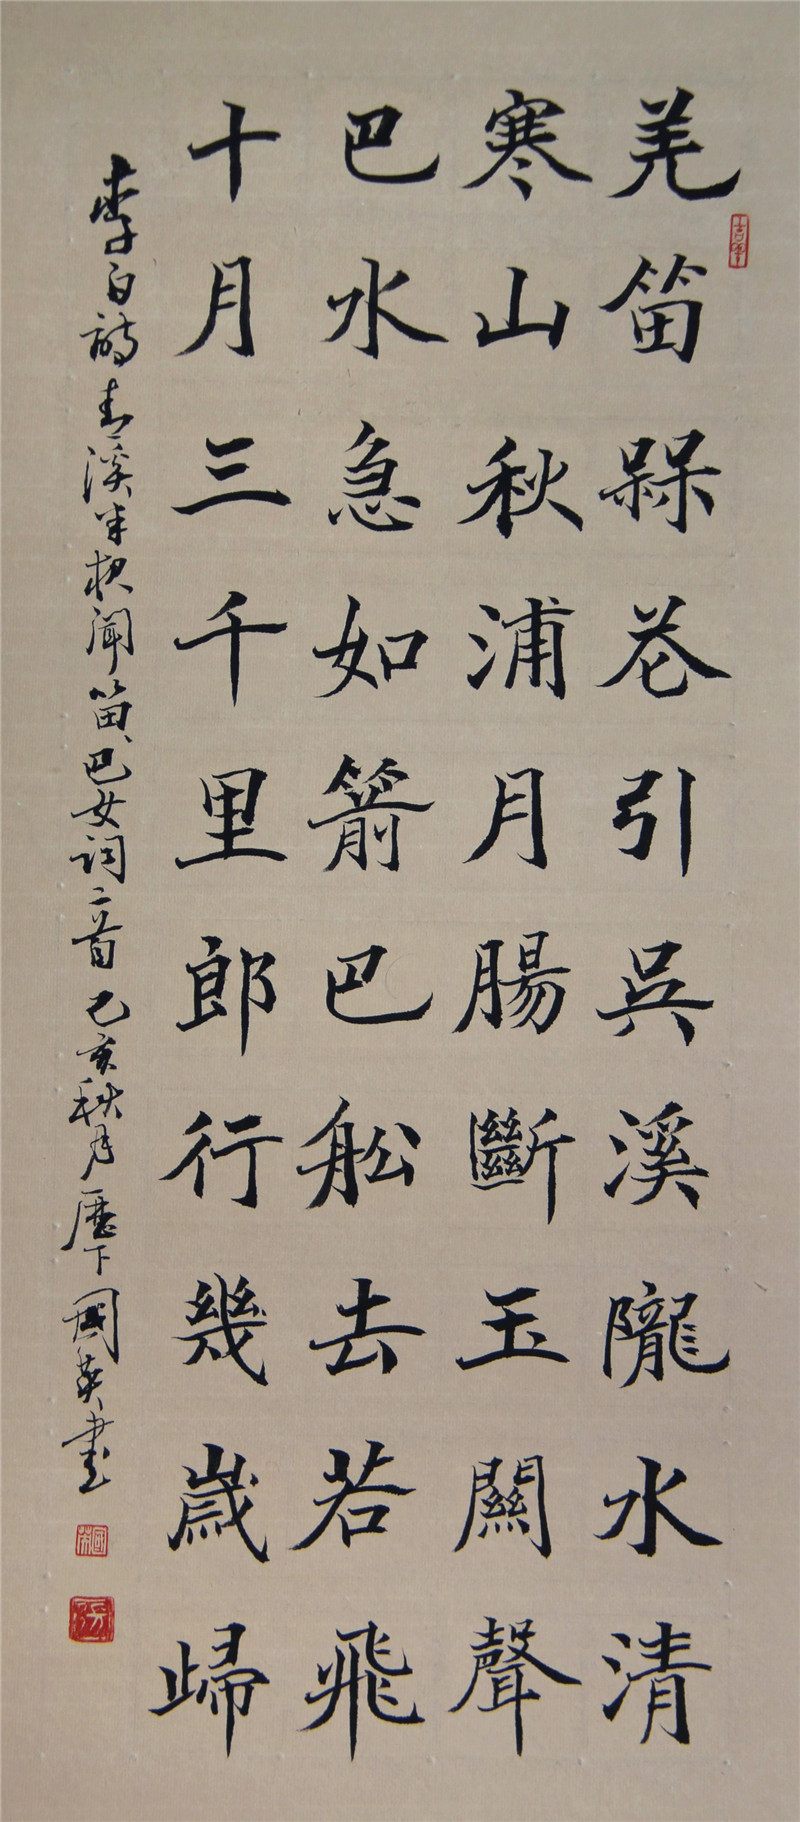 羌笛槑苍引吳溪隴水清
寒山秋浦月腸斷玉關聲
巴水急如箭巴舩去若飛
十月三千里郎行幾歲歸
李白詩青溪半夜聞笛、巴女詞二首己亥秋月歷下國英書